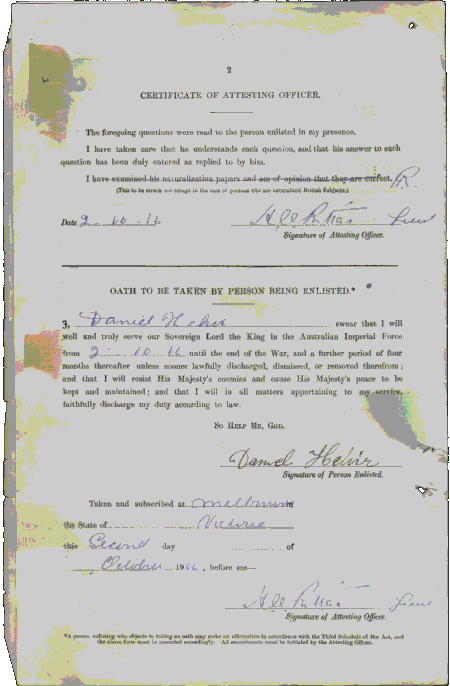 2
CERTIFICATE OF ATTESTING OFFICER.
The foregoing questions were read to the person enlisted in my presence.
I have taken care that he understands each question, and that his answer to each
question has been duly entered as replied to by him.
I have examined his naturalization papers and am of opinion that they are correct.
(This to be struck out except in the case of persons who are naturalized British Subjects.)
Date 2 . 10 . 16
Signature of Attesting Officer.
OATH TO BE TAKEN BY PERSON BEING ENLISTED.*
I, Daniel swear that I will
well and truly serve our Sovereign Lord the King in the Australian Imperial Force
from 2 . 10 . 16 until the end of the War, and a further period of four
months thereafter unless sooner lawfully discharged, dismissed, or removed therefrom;
and that I will resist His Majesty's enemies and cause His Majesty's peace to be
kept and maintained; and that I will in all matters appertaining to my service,
faithfully discharge my duty according to law.
SO HELP ME, GOD.
Daniel
Signature of Person Enlisted.
Taken and subscribed at Melbourne
the State of Victoria
this Second day of
October 1916, before me—
Signature of Attesting Officer.
*A person enlisting who objects to taking an oath may make an affirmation in accordance with the Third Schedule of the Act, and
the above form must be amended accordingly. All amendments must be initialed by the Attesting Officer.